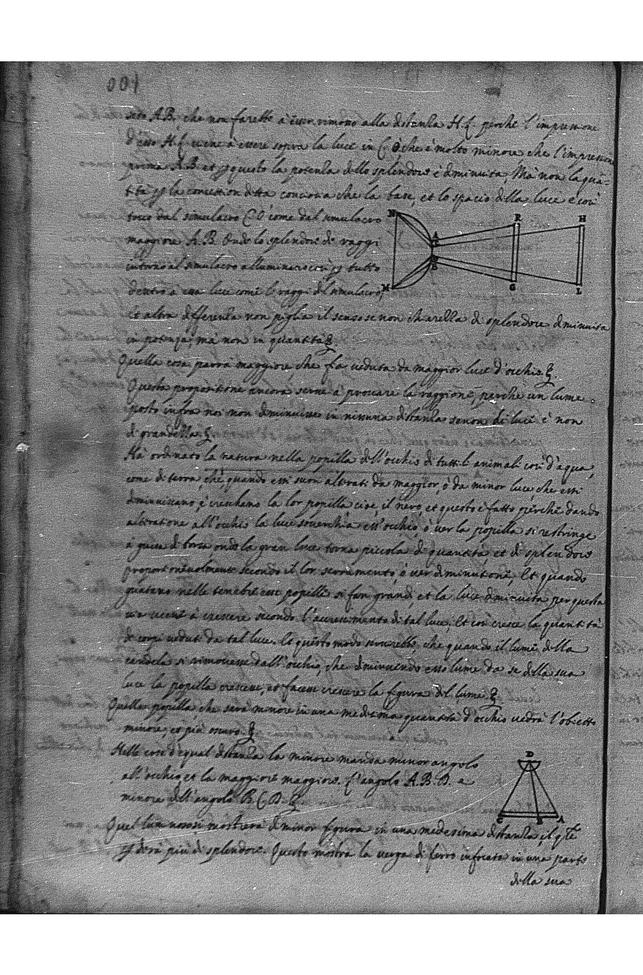 100
sito A.B. che non farebbe à esser rimoto alla distantia H.L. perche l'impressione
d'esso H.L. viene à essere sopra la luce in C.O che è molto minore che l'impressione
prima A.B. et p questo la potentia dello splendore è diminuita. Ma non la quā-
tità p la concession detta concorra che la base, et lo spacio della luce è così
tocco dal simulacro C.O come dal simulacro
maggiore A.B. Onde lo splendore di raggi
intorno al simulacro alluminano così p tutto
dentro a essa luce come li raggi del simulacro,
et altra differentia non piglia il senso se non che arella di splendore diminuita
in potenza, ma non in quantità.
N
M
A
C
O
B
R
G
H
L
Quella cosa parra maggiore che fia veduta da maggior luce d'occhio.
Questa propositione ancora serve à provare la raggione, perche un lume
posto infra noi non diminuisce in nissuna distantia senon di luce è non
di grandezza.
Hà ordinato la natura nella popilla dell'occhio di tutti l'animali così d'aqua,
come di terra che, quando essi sieno alterati da maggior, ò da minor luce che essi
diminuiscano, ò creschano la lor popilla cioe il nero, et questo è fatto perche dando
alteratione all'occhio la luce soverchia ess'occhio, ò ver la popilla si restringe
à guisa di borsa onde la gran luce torna piccola di quantità et di splendore
proportionevolmente secondo il lor serramento, ò ver diminutione. Et quando
guatano nelle tenebre esse popille si fan grandi, et la luce diminuita per questa
via viene à crescere secondo l'accrescimento di tal luce. Et così cresce la quantità
de corpi veduti da tal luce. In questo modo sarrebbe, che quando il lume della
candela si rimovesse dall'occhio, che diminuendo esso lume da se della sua
luce la popilla crescesse, et facessi crescere la figura del lume.
Quella popilla che sara minore in una medesima quantità d'occhio vedrà l'obietto
minore, et più oscuro.
Nelle cose d'equal distantia la minore manda minor angolo
all'occhio, et la maggiore maggiore. L'angolo A.B.D. è
minore dell'angolo B.C.D.
D
C
B
A
Quel lume nonosi mostrerà di minor figura in una medesima distantia, il qle
p derà più di splendore. Questo mostra la verga di ferro infocata in una parte
della sua